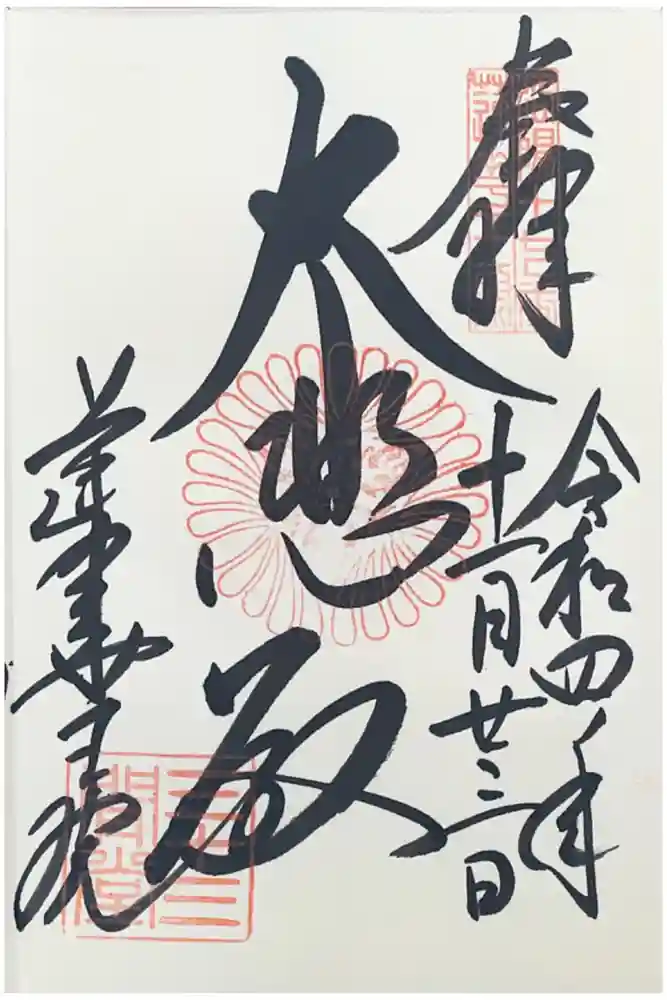 奉拝
令和四年
十一月廿三日
大悲殿
蓮華王院
三十三間堂